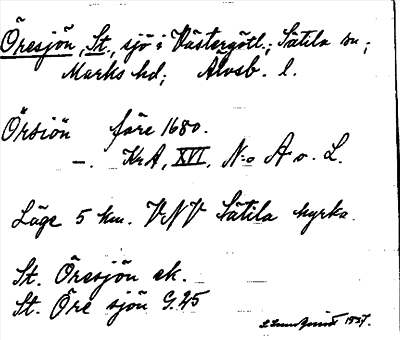 Öresjön, St., sjö i Västergötl.; Sätila sn;
Marks hd; Älvsb. l.
Örsiön före 1680.
—. KrA, XVI, N:o A o. L.
Läge 5 km. VNV Sätila kyrka.
St. Öresjön ek.
St. Öre sjön G.25
1937.